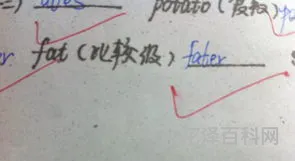 potato(复数)
er fat(比较级) fater
泽百科网